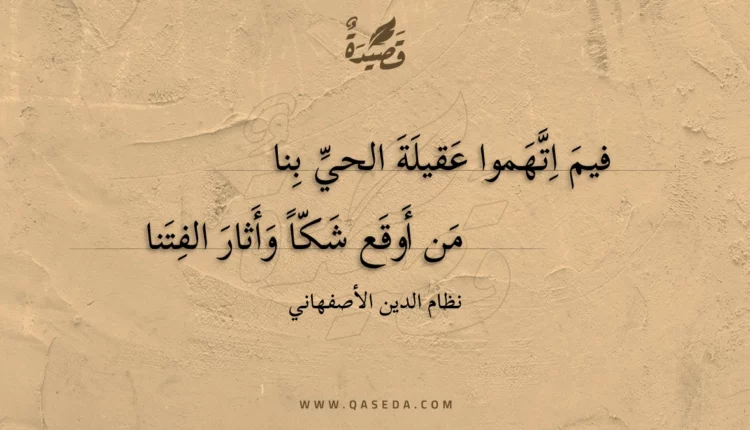 قَصِيْدَةٌ
فيمَ اِتَّهَموا عَقيلَةَ الحيِّ بِنا
مَن أَوقَع شَكّاً وَأَثارَ الفِتَنا
نظام الدين الأصفهاني
WWW.QASEDA.COM